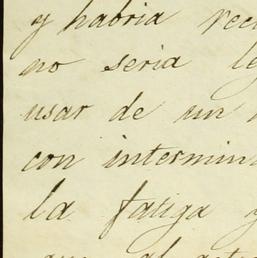 y habria rec
no seria le
usar de un
con intermin
la fatiga y